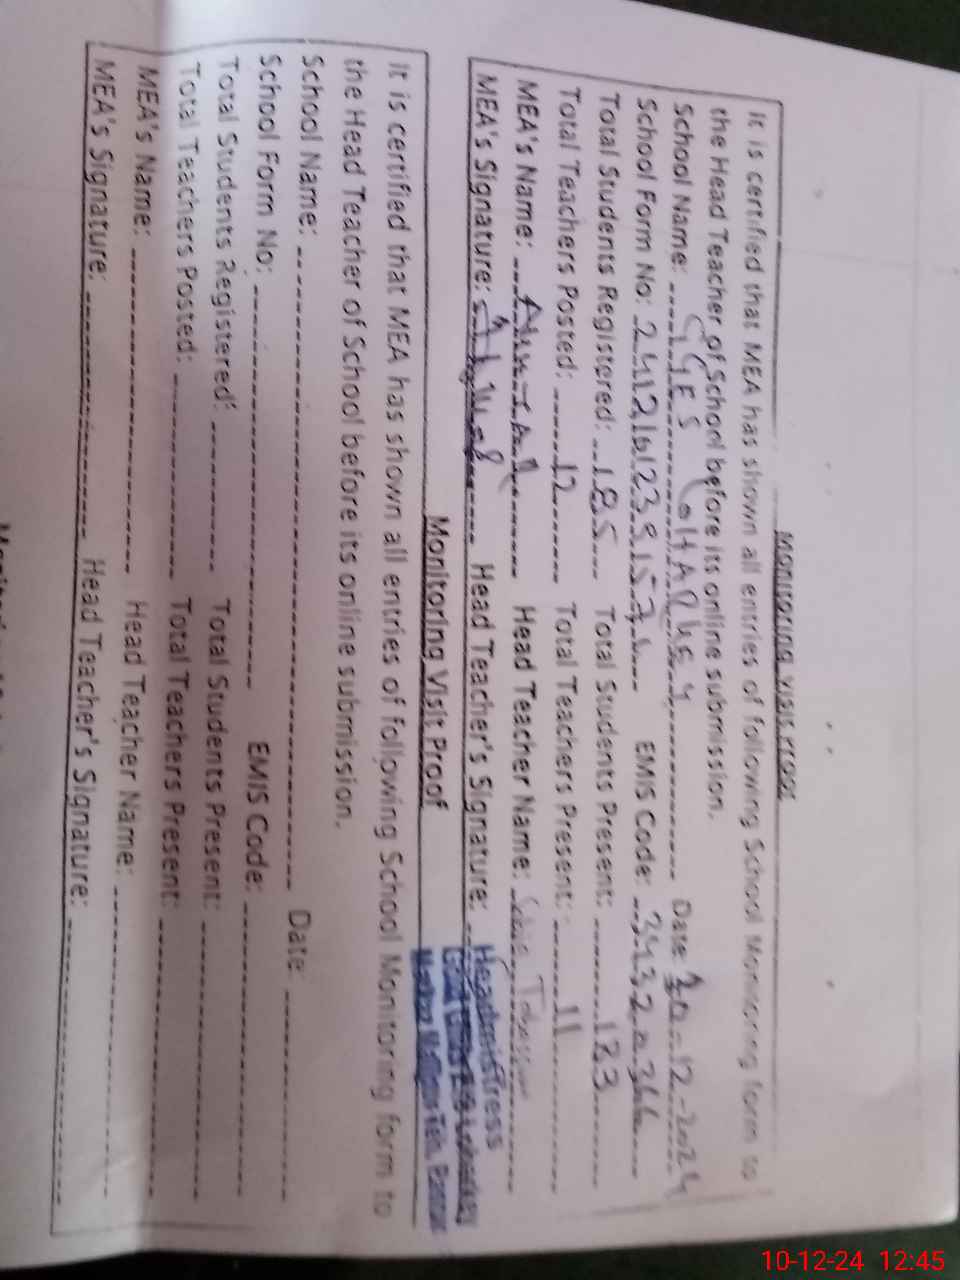 Monitoring Visit Proof
It is certified that MEA has shown all entries of following School Monitoring form to
the Head Teacher of School before its online submission.
School Name: GGES Date: 10-12-2024
School Form No: EMIS Code:
Total Students Registered: 185 Total Students Present: 183
Total Teachers Posted: 12 Total Teachers Present: 11
MEA's Name: Head Teacher Name:
MEA's Signature: Head Teacher's Signature:
Headmistress
Monitoring Visit Proof
It is certified that MEA has shown all entries of following School Monitoring form to
the Head Teacher of School before its online submission.
School Name: Date:
School Form No: EMIS Code:
Total Students Registered: Total Students Present:
Total Teachers Posted: Total Teachers Present:
MEA's Name: Head Teacher Name:
MEA's Signature: Head Teacher's Signature:
10-12-24 12:45